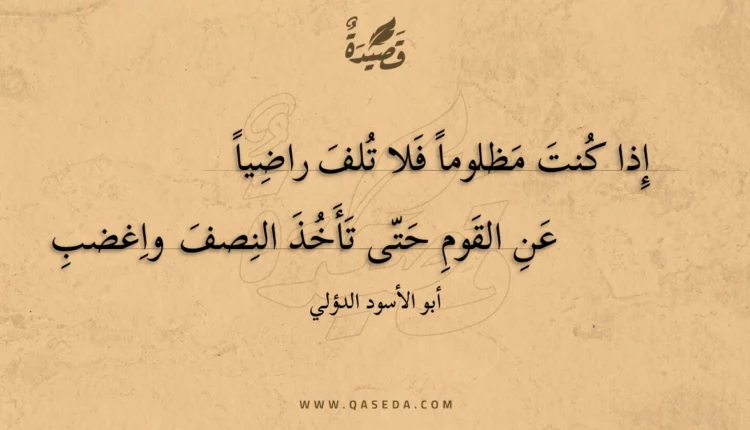 قَصِيْدَةٌ
إِذا كُنتَ مَظلوماً فَلا تُلفَ راضِياً
عَنِ القَومِ حَتّى تَأَخُذَ النِصفَ واِغضبِ
أبو الأسود الدؤلي
WWW.QASEDA.COM